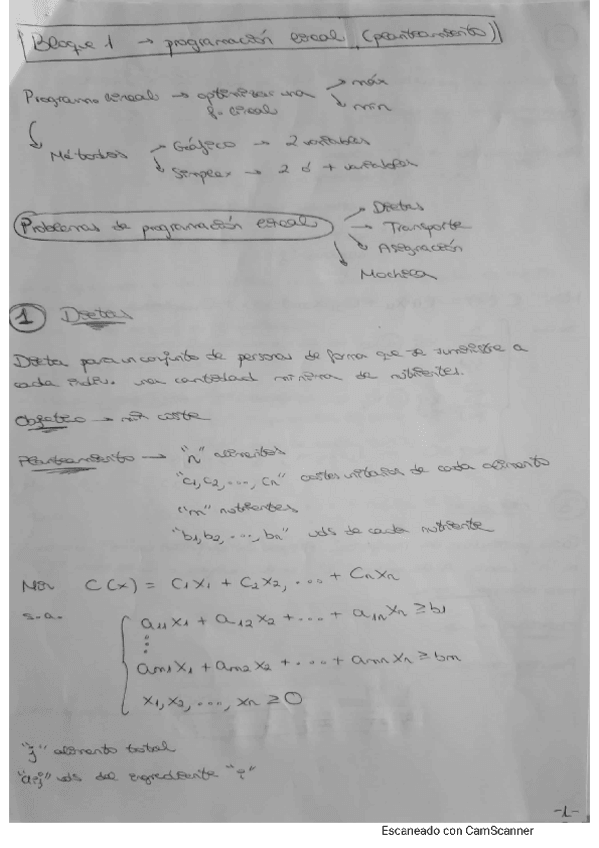 Bloque 1 → programación lineal (planteamiento)
Programa lineal → optimizar una f. lineal → máx
→ min
Métodos → Gráfico → 2 variables
→ Simplex → 2 ó + variables
Problemas de programación lineal → Dietas
→ Transporte
→ Asignación
→ Mochila
1 Dietas
Dieta para un conjunto de personas de forma que se suministre a
cada indiv. una cantidad mínima de nutrientes.
Objetivo → min coste
Planteamiento → "n" alimentos
"c1, c2, ..., cn" costes unitarios de cada alimento
"m" nutrientes
"b1, b2, ..., bn" uds de cada nutriente
Min C(x) = C1X1 + C2X2, .... + CnXn
s.a.
a11X1 + a12X2 + .... + a1nXn ≥ b1
⋮
am1X1 + am2X2 + .... + amnXn ≥ bm
X1, X2, ..., Xn ≥ 0
"j" alimento total
"aij" uds del ingrediente "i"
-1-
Escaneado con CamScanner